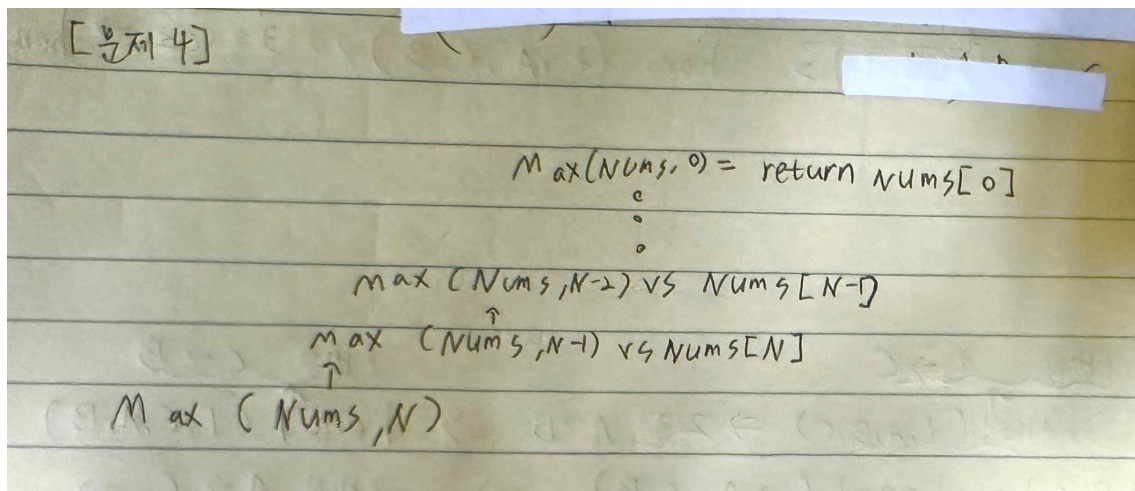 [문제 4]
Max(Nums, 0) = return Nums[0]
max (Nums, N-2) vs Nums[N-1]
↑
max (Nums, N-1) vs Nums[N]
↑
Max (Nums, N)